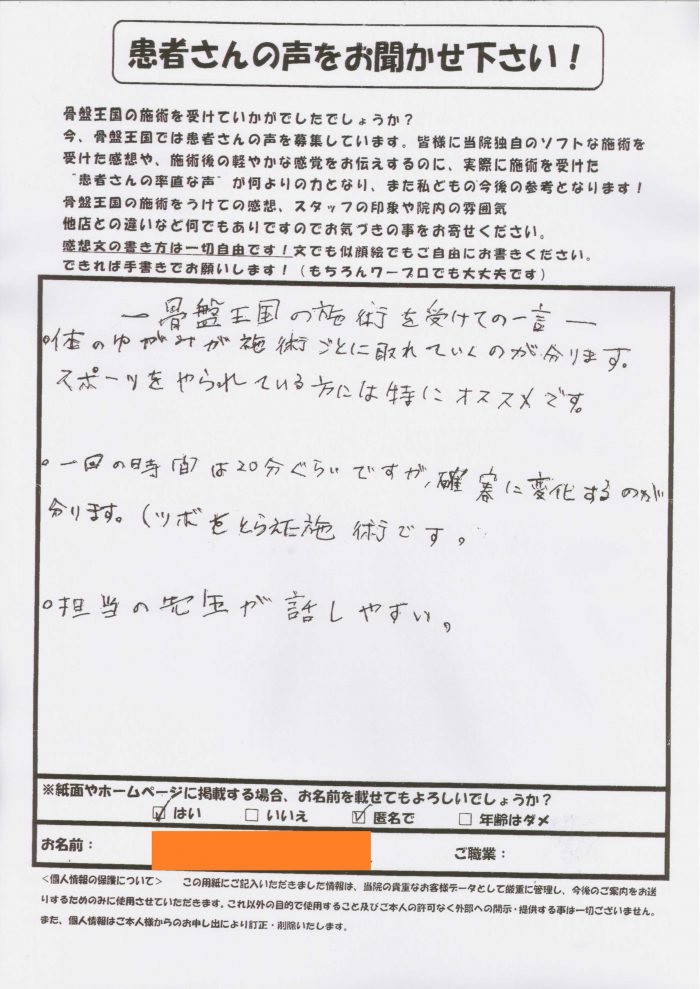 患者さんの声をお聞かせ下さい！
骨盤王国の施術を受けていかがでしたでしょうか？
今、骨盤王国では患者さんの声を募集しています。皆様に当院独自のソフトな施術を
受けた感想や、施術後の軽やかな感覚をお伝えするのに、実際に施術を受けた
“患者さんの率直な声”が何よりの力となり、また私どもの今後の参考となります！
骨盤王国の施術をうけての感想、スタッフの印象や院内の雰囲気
他店との違いなど何でもありですのでお気づきの事をお寄せください。
感想文の書き方は一切自由です！文でも似顔絵でもご自由にお書きください。
できれば手書きでお願いします！（もちろんワープロでも大丈夫です）
ー骨盤王国の施術を受けての一言ー
○体のゆがみが施術ごとに取れていくのが分ります。
スポーツをやられている方には特にオススメです。
○一回の時間は20分ぐらいですが、確実に変化するのが
分ります。（ツボをとらえた施術です。
○担当の先生が話しやすい。
※紙面やホームページに掲載する場合、お名前を載せてもよろしいでしょうか？
☑はい □いいえ ☑匿名で □年齢はダメ
お名前： ご職業：
＜個人情報の保護について＞ この用紙にご記入いただきました情報は、当院の貴重なお客様データとして厳重に管理し、今後のご案内をお送
りするためのみに使用させていただきます。これ以外の目的で使用すること及びご本人の許可なく外部への開示・提供する事は一切ございません。
また、個人情報はご本人様からのお申し出により訂正・削除いたします。